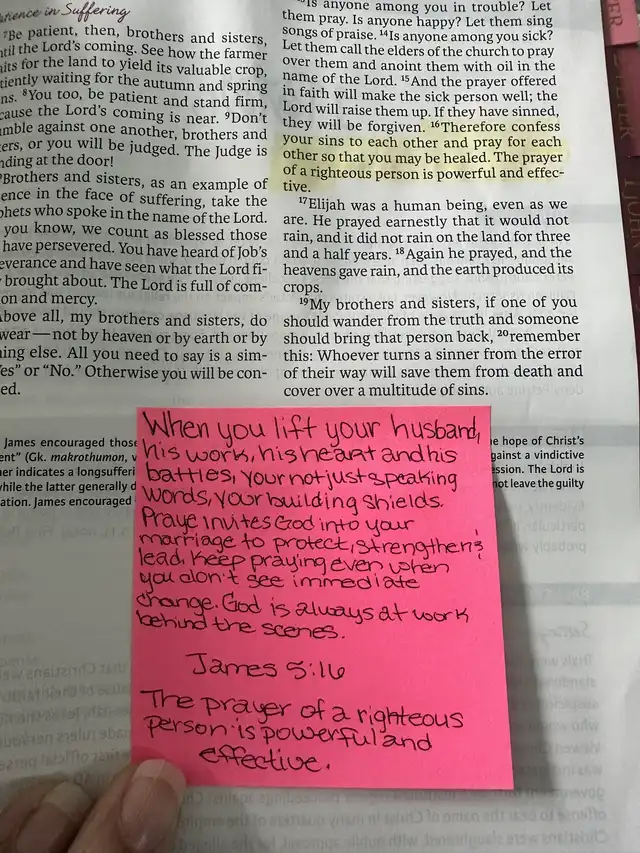 tience in Suffering
⁷Be patient, then, brothers and sisters,
til the Lord's coming. See how the farmer
its for the land to yield its valuable crop,
tiently waiting for the autumn and spring
ns. ⁸You too, be patient and stand firm,
cause the Lord's coming is near. ⁹Don't
mble against one another, brothers and
ers, or you will be judged. The Judge is
nding at the door!
Brothers and sisters, as an example of
ence in the face of suffering, take the
phets who spoke in the name of the Lord.
you know, we count as blessed those
have persevered. You have heard of Job's
everance and have seen what the Lord fi-
brought about. The Lord is full of com-
on and mercy.
bove all, my brothers and sisters, do
wear—not by heaven or by earth or by
ing else. All you need to say is a sim-
es" or "No." Otherwise you will be con-
ed.
Is anyone among you in trouble? Let
them pray. Is anyone happy? Let them sing
songs of praise. ¹⁴Is anyone among you sick?
Let them call the elders of the church to pray
over them and anoint them with oil in the
name of the Lord. ¹⁵And the prayer offered
in faith will make the sick person well; the
Lord will raise them up. If they have sinned,
they will be forgiven. ¹⁶Therefore confess
your sins to each other and pray for each
other so that you may be healed. The prayer
of a righteous person is powerful and effec-
tive.
¹⁷Elijah was a human being, even as we
are. He prayed earnestly that it would not
rain, and it did not rain on the land for three
and a half years. ¹⁸Again he prayed, and the
heavens gave rain, and the earth produced its
crops.
¹⁹My brothers and sisters, if one of you
should wander from the truth and someone
should bring that person back, ²⁰remember
this: Whoever turns a sinner from the error
of their way will save them from death and
cover over a multitude of sins.
James encouraged those
ent" (Gk. makrothumon, v
er indicates a longsufferi
while the latter generally d
ation. James encouraged
e hope of Christ's
gainst a vindictive
ession. The Lord is
not leave the guilty
When you lift your husband,
his work, his heart and his
battles, your not just speaking
words, your building shields.
Praye invites God into your
marriage to protect, strengthen &
lead. Keep praying even when
you don't see immediate
change. God is always at work
behind the scenes.
James 5:16
The prayer of a righteous
person is powerful and
effective.